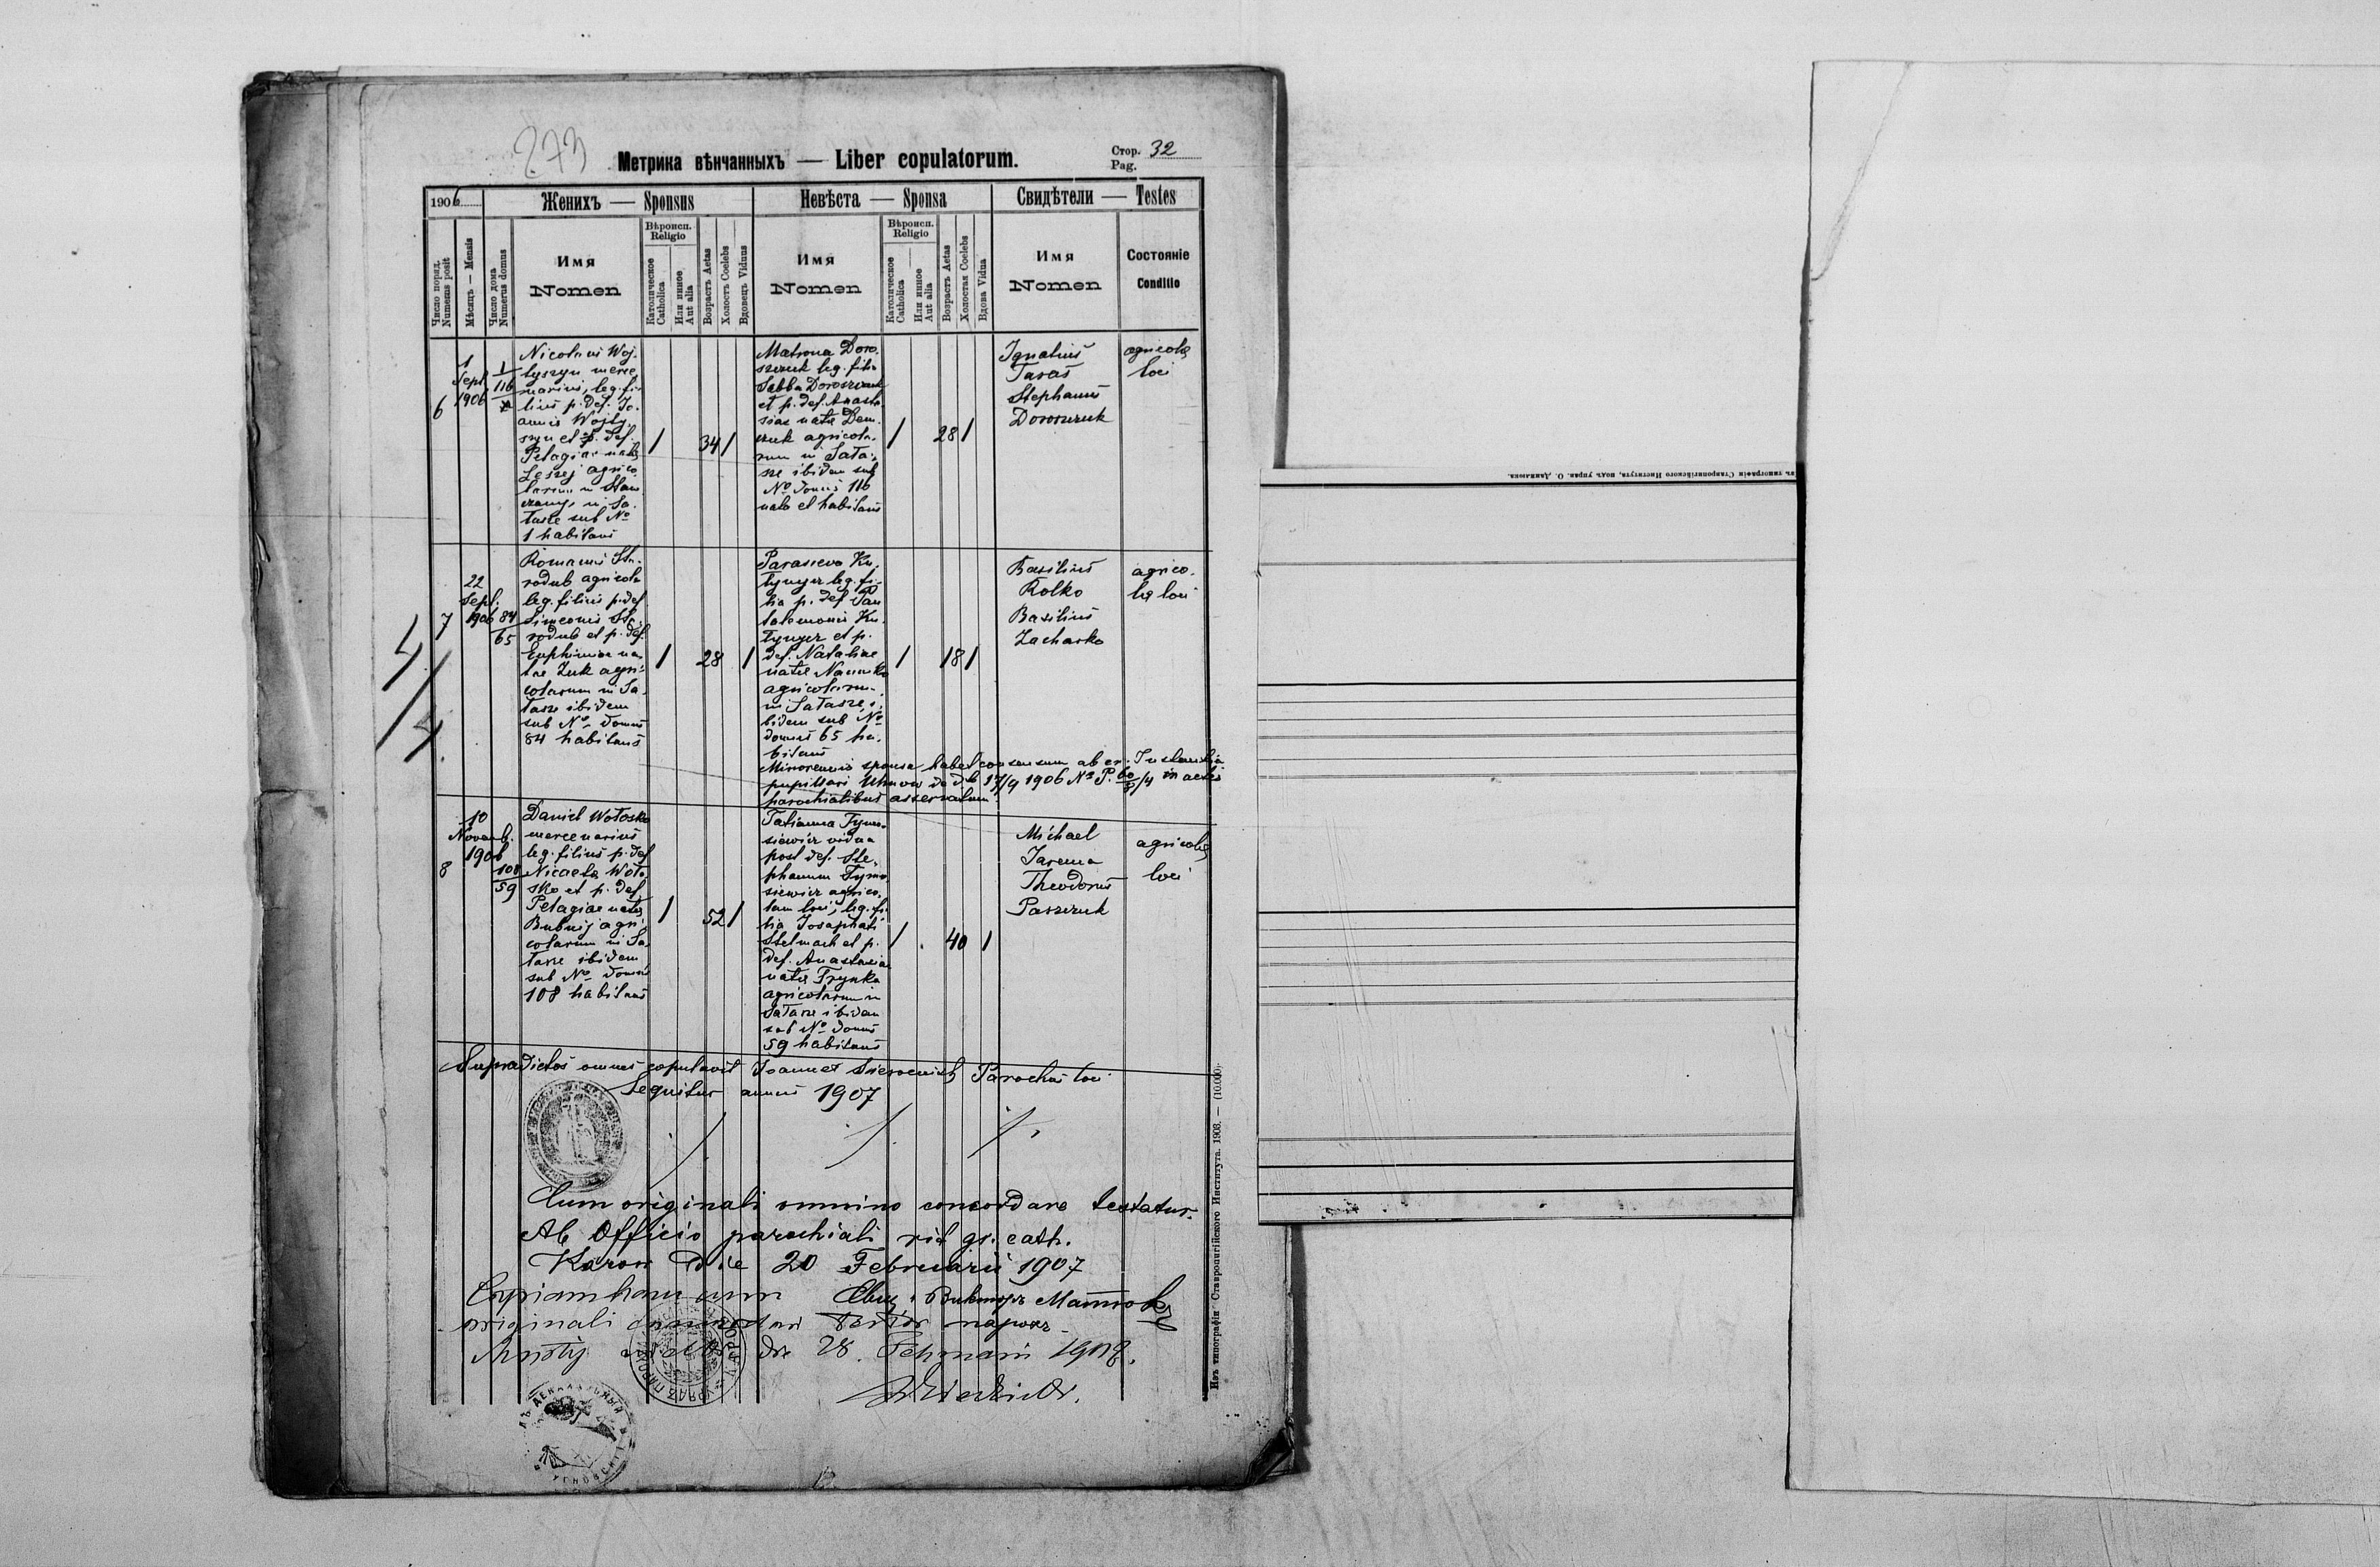 273
Метрика вѣнчанныхъ — Liber copulatorum.
Стор. 32
Pag.
1906
Женихъ — Sponsus
Невѣста — Sponsa
Свидѣтели — Testes
Число поряд.
Numerus posit
Мѣсяць — Mensis
Число дома
Numerus domus
Имя
Nomen
Вѣроисп.
Religio
Католическое
Catholica
Или инное
Aut alia
Возрастъ Aetas
Холостъ Coelebs
Вдовець Viduus
Имя
Nomen
Вѣроисп.
Religio
Католическое
Catholica
Или инное
Aut alia
Возрастъ Aetas
Холостая Coelebs
Вдова Vidua
Имя
Nomen
Состояніе
Conditio
6
1
Sept.
1906
1
116
Nicolaus Woj-
tyszyn merce
narius, leg. fi-
lius p. def. Jo-
annis Wojty-
szyn et p. def.
Pelagiae natae
Leszej agrico
larum in
in Sa-
tasze sub No
1 habitans
1
34
1
Matrona Doro-
szczuk leg. filia
Sabba Doroszczuk
et p. def. Anasta
siae natae Dem-
czuk agricola-
rum in Sała-
sze ibidem sub
No domus 116
nata et habitans
1
28
1
Ignatius
Taras
Stephanus
Doroszczuk
agricolae
loci
7
22
Sept.
1906
84
65
Romanus Sta-
rodub agricola
leg. filius p. def
Simeonis Sta-
rodub et p. def.
Euphimiae na-
tae Żuk agri-
colarum in Sa-
łasze ibidem
sub No domus
84 habitans
1
28
1
Parasceva Ku-
tynycz leg. fi-
lia p. def Pan
talemonis Ku-
tynycz et p.
def. Nataliae
natae Naumko
agricolarum
in Sałasze, i-
bidem sub No
domus 65 ha-
bitans
1
18
1
Basilius
Rolko
Basilius
Zacharko
agrico-
lae loci
Minorennis sponsa habet consensum ab
pupillari Uhnow 17/9 1906 No P. 60/3/4 in actis
parochialibus asservatum.
8
10
Novemb.
1906
108
59
Daniel Wołosko
mercenarius
leg. filius p. def
Woło-
sko et p. def.
Pelagiae natae
Bubnij agri-
colarum in Sa-
łasze ibidem
sub No domus
108 habitans
1
52
1
Tatianna Tymo-
siewicz vidua
post def. Ste-
phanum Tymo-
siewicz agrico-
lam loci, leg. fi-
lia Josaphati
Stelmach et p.
def. Anastasiae
natae Frynka
agricolarum in
Sałasze ibidem
sub No domus
59 habitans
1
40
1
Michael
Jarema
Theodorus
Paszczuk
agricolae
loci
Supradictos omnes copulavit Joannes Parochus loci
Sequitur annus 1907
Cum originali omnino concordare testatur.
Ab Officio parochiali rit gr. cath.
Karow die 20 Februarii 1907
originali
28. 190
Изъ типографіи Ставропигійского Института. 1903. — (10.000)
ъ типографіи Ставропигійского Института, подъ управ. О. Данилюка.